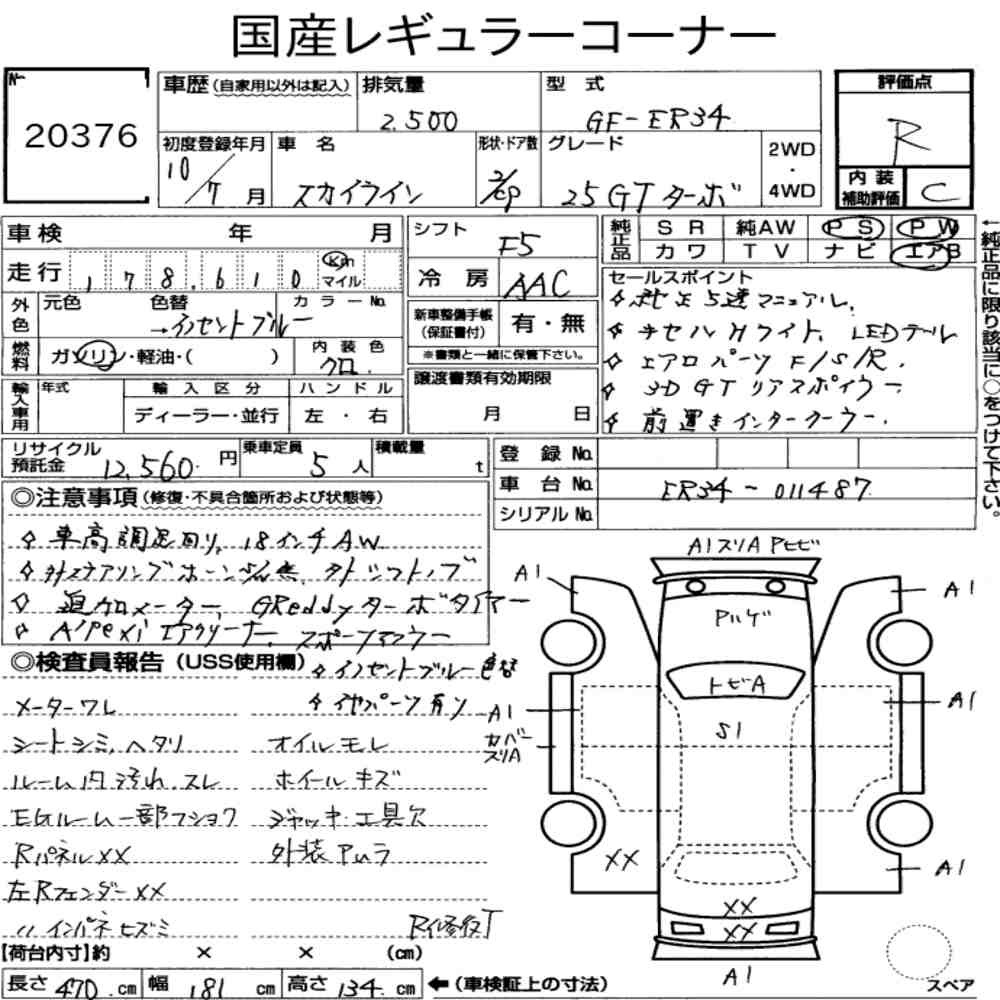 国産レギュラーコーナー
No.
20376
車歴(自家用以外は記入)
排気量
2,500
型 式
GF-ER34
評価点
R
初度登録年月
10/7月
車 名
スカイライン
形状・ドア数
2/cp
グレード
25GTターボ
2WD
・
4WD
内 装
補助評価
C
車検 年 月
走行 178,610 Km
マイル
シフト
F5
冷 房
AAC
純正品
SR 純AW PS PW
カワ TV ナビ エアB
←純正品に限り該当に○をつけて下さい。
外色
元色 色替
→イノセントブルー
カラーNo.
燃料
ガソリン・軽油・( )
内 装 色
クロ
新車整備手帳
(保証書付)
有・無
※書類と一緒に保管下さい。
セールスポイント
純正5速マニュアル.
キセルHライト. LEDテール
エアロパーツF/S/R.
3DGTリアスポイラー
前置きインタークーラー.
輸入車用
年式
輸 入 区 分
ディーラー・並行
ハ ン ド ル
左 ・ 右
譲渡書類有効期限
月 日
リサイクル
預託金
12,560 円
乗車定員
5人
積載量
t
登 録 No.
車 台 No.
ER34-011487
シリアルNo.
◎注意事項(修復・不具合箇所および状態等)
車高調足回り, 18インチAW
外ステアリングホーン 外シフトノブ
追加メーター, GReddyターボタイマー
A'PEXiエアクリーナー, スポーツマフラー
◎検査員報告(USS使用欄)
イノセントブルー色替
メーターワレ
シートシミ,ヘタリ
オイルモレ
ルーム内汚れ.スレ
ホイールキズ
EGルーム一部フショク
ジャッキ・工具欠
RパネルXX
外装アムラ
左RフェンダーXX
〃インパネヒズミ
R修復T
【荷台内寸】約 × × (cm)
長さ 470.cm
幅 181 cm
高さ 134.cm
←(車検証上の寸法)
A1スリA Pセビ
A1
A1
Pハゲ
トビA
A1
A1
カバースリA
S1
XX
A1
XX
XX
A1
スペア